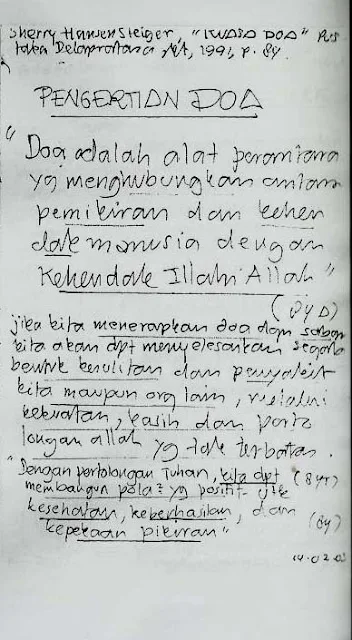 Sherry Hansen Steiger, "KUASA DOA" Pus
taka Delapratasa, Jkt, 1991, p. 84.
PENGERTIAN DOA
"Doa adalah alat perantara
yg menghubungkan antara
pemikiran dan kehen
dak manusia dengan
kehendak Illahi Allah"
(84)
jika kita menerapkan doa dgn sabar
kita akan dpt menyelesaikan segala
bentuk kesulitan dan penyakit
kita maupun org lain, melalui
kekuatan, kasih dan perto
longan allah yg tak terbatas.
"Dengan pertolongan Tuhan, kita dpt (84)
membangun pola2 yg positif utk
kesehatan, keberhasilan, dan
kepekaan pikiran" (84)
14.02.0